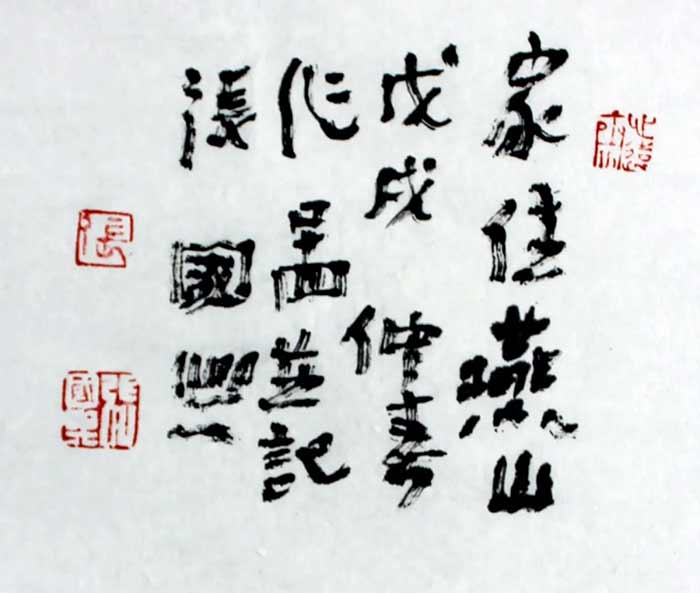 家住燕山
戊戌仲春
作並記
張國
張